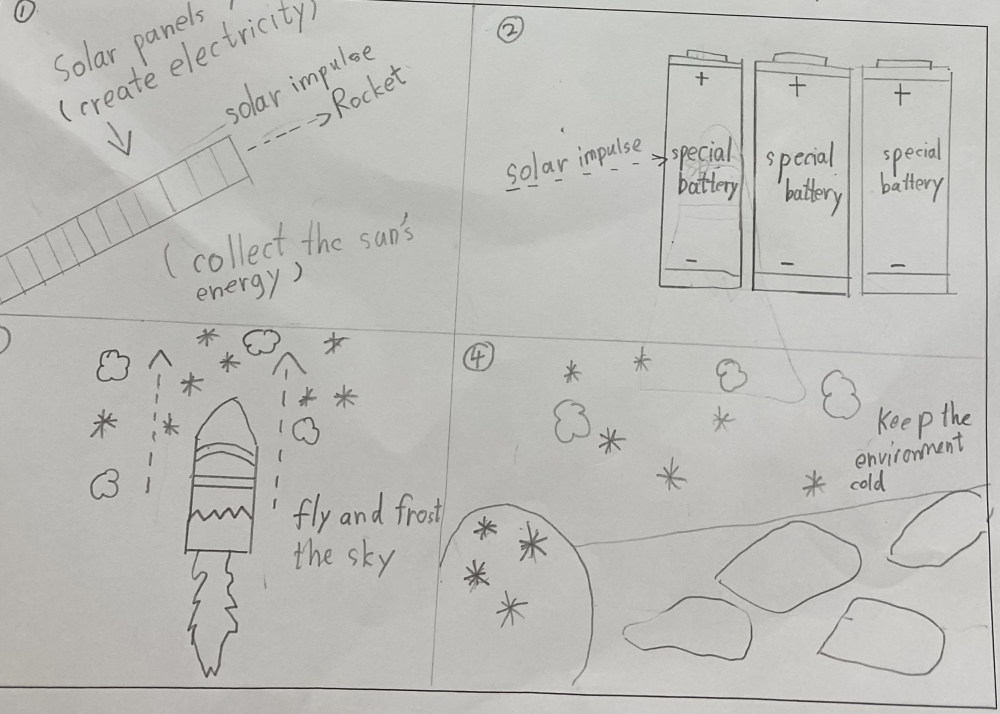 ①
Solar panels
(create electricity)
solar impulse
Rocket
(collect the sun's
energy)
②
solar impulse
+
special
battery
-
+
special
battery
-
+
special
battery
-
fly and frost
the sky
④
Keep the
environment
cold